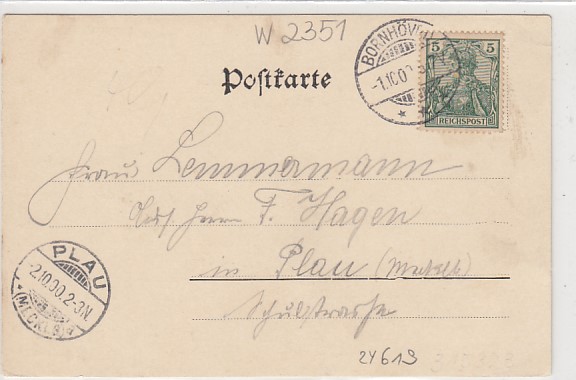 W 2351
BORNHÖV
-1.10.0
5 5
REICHSPOST
Postkarte
Frau Lemmermann
Herrn F. Hagen
in Plau (Meckl)
Schulstrasse
PLAU
-2.10.00.2-3N.
*(MECKLB)*
24613